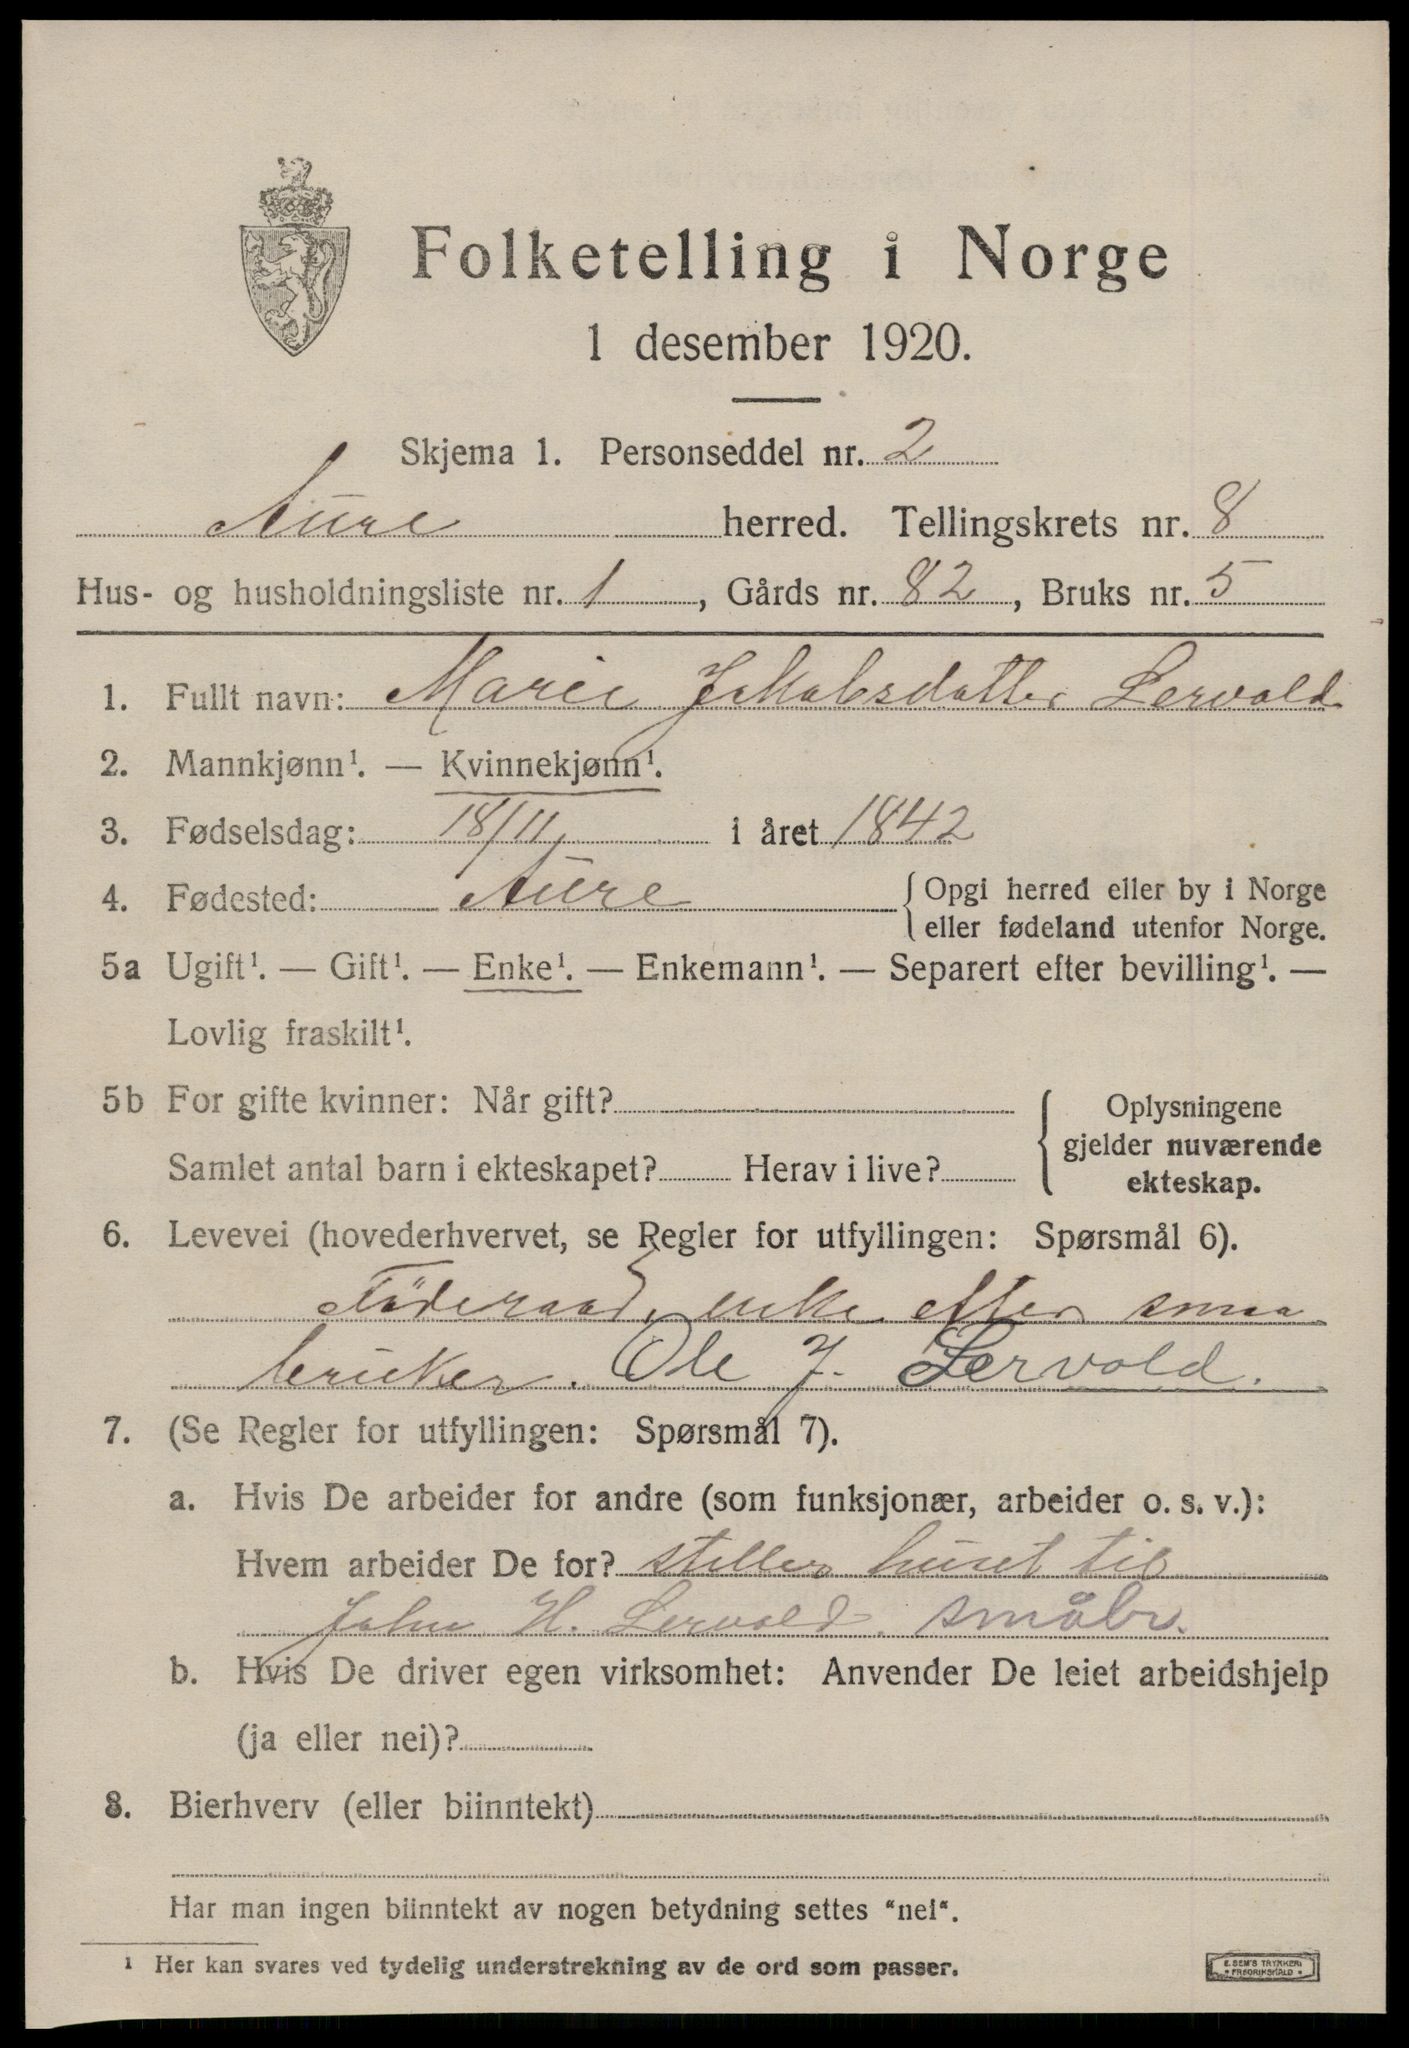 Folketelling i Norge
1 desember 1920.
Skjema 1. Personseddel nr. 2
Aure herred. Tellingskrets nr. 8
Hus- og husholdningsliste nr. 1, Gårds nr. 82, Bruks nr. 5
1. Fullt navn: Marie Jakobsdatter Lervold
2. Mannkjønn¹. — Kvinnekjønn¹.
3. Fødselsdag: 18/11 i året 1842
4. Fødested: Aure { Opgi herred eller by i Norge
eller fødeland utenfor Norge.
5a Ugift¹. — Gift¹. — Enke¹. — Enkemann¹. — Separert efter bevilling¹. —
Lovlig fraskilt¹.
5b For gifte kvinner: Når gift?
Samlet antal barn i ekteskapet? Herav i live?
{ Oplysningene
gjelder nuværende
ekteskap.
6. Levevei (hovederhvervet, se Regler for utfyllingen: Spørsmål 6).
Föderaad, enke efter smaa
bruker. Ole J. Lervold.
7. (Se Regler for utfyllingen: Spørsmål 7).
a. Hvis De arbeider for andre (som funksjonær, arbeider o. s. v.):
Hvem arbeider De for? steller huset til
John H. Lervold. småbr.
b. Hvis De driver egen virksomhet: Anvender De leiet arbeidshjelp
(ja eller nei)?
8. Bierhverv (eller biinntekt)
Har man ingen biinntekt av nogen betydning settes "nei".
¹ Her kan svares ved tydelig understrekning av de ord som passer.
E. SEM'S TRYKKERI
FREDRIKSHALD